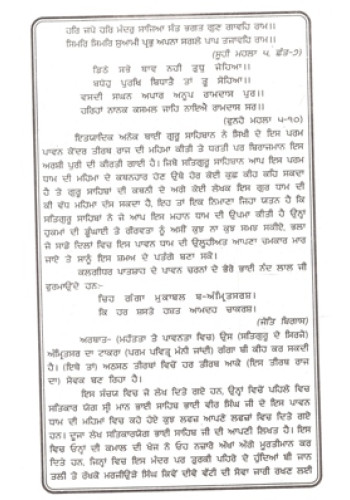 ਹਰਿ ਜਪੇ ਹਰਿ ਮੰਦਰੁ ਸਾਜਿਆ ਸੰਤ ਭਗਤ ਗੁਣ ਗਾਵਹਿ ਰਾਮ॥
ਸਿਮਰਿ ਸਿਮਰਿ ਸੁਆਮੀ ਪ੍ਰਭੁ ਅਪਨਾ ਸਗਲੇ ਪਾਪ ਤਜਾਵਹਿ ਰਾਮ॥
(ਸੂਹੀ ਮਹਲਾ ੫, ਛੰਤ-੭)
ਡਿਠੇ ਸਭੇ ਥਾਵ ਨਹੀ ਤੁਧੁ ਜੇਹਿਆ॥
ਬਧੋਹੁ ਪੁਰਖਿ ਬਿਧਾਤੈ ਤਾਂ ਤੂ ਸੋਹਿਆ॥
ਵਸਦੀ ਸਘਨ ਅਪਾਰ ਅਨੂਪ ਰਾਮਦਾਸ ਪੁਰ॥
ਹਰਿਹਾਂ ਨਾਨਕ ਕਸਮਲ ਜਾਹਿ ਨਾਇਐ ਰਾਮਦਾਸ ਸਰ॥
(ਫੁਨਹੇ ਮਹਲਾ ੫-੧੦)
ਇਤਯਾਦਿਕ ਅਨੇਕ ਥਾਈਂ ਗੁਰੂ ਸਾਹਿਬਾਨ ਨੇ ਸਿਖੀ ਦੇ ਇਸ ਪਰਮ
ਪਾਵਨ ਕੇਂਦਰ ਤੀਰਥ ਰਾਜ ਦੀ ਮਹਿਮਾ ਕੀਤੀ ਤੇ ਧਰਤੀ ਪਰ ਬਿਰਾਜਮਾਨ ਇਸ
ਅਰਸ਼ੀ ਪੁਰੀ ਦੀ ਕੀਰਤੀ ਗਾਈ ਹੈ। ਜਿਥੇ ਸਤਿਗੁਰੂ ਸਾਹਿਬਾਨ ਆਪ ਇਸ ਪਰਮ
ਧਾਮ ਦੀ ਮਹਿਮਾ ਦੇ ਕਥਨਹਾਰ ਹੋਣ ਉਥੇ ਹੋਰ ਕੋਈ ਕੁਛ ਕੀਹ ਕਹਿ ਸਕਦਾ
ਹੈ ਤੇ ਗੁਰੂ ਸਾਹਿਬਾਂ ਦੀ ਕਥਨੀ ਦੇ ਅਗੇ ਕੋਈ ਲੇਖਕ ਇਸ ਗੁਰ ਧਾਮ ਦੀ
ਕੀ ਵੱਧ ਮਹਿਮਾ ਦੱਸ ਸਕਦਾ ਹੈ, ਇਹ ਤਾਂ ਇਕ ਨਿਮਾਣਾ ਜਿਹਾ ਯਤਨ ਹੈ ਕਿ
ਸਤਿਗੁਰੂ ਸਾਹਿਬਾਂ ਨੇ ਜੋ ਆਪ ਇਸ ਮਹਾਨ ਧਾਮ ਦੀ ਉਪਮਾ ਕੀਤੀ ਹੈ ਉਨ੍ਹਾਂ
ਹੁਕਮਾਂ ਦੀ ਡੂੰਘਾਈ ਤੇ ਗੌਰਵਤਾ ਨੂੰ ਅਸੀਂ ਕੁਛ ਨਾ ਕੁਛ ਸਮਝ ਸਕੀਏ, ਭਲਾ
ਜੇ ਸਾਡੇ ਦਿਲਾਂ ਵਿਚ ਇਸ ਪਾਵਨ ਧਾਮ ਦੀ ਉਲੂਹੀਅਤ ਆਪਣਾ ਚਮਕਾਰ ਮਾਰ
ਜਾਏ ਤੇ ਸਾਨੂੰ ਇਸ ਸ਼ਮਅ ਦੇ ਪਤੰਗੇ ਬਣਾ ਸਕੇ।
ਕਲਗੀਧਰ ਪਾਤਸ਼ਾਹ ਦੇ ਪਾਵਨ ਚਰਨਾਂ ਦੇ ਭੌਰੇ ਭਾਈ ਨੰਦ ਲਾਲ ਜੀ
ਫੁਰਮਾਉਂਦੇ ਹਨ:-
ਚਿਹ ਗੰਗਾ ਮੁਕਾਬਲ ਬ-ਅੰਮ੍ਰਿਤਸਰਸ਼।
ਕਿ ਹਰ ਸ਼ਸਤੋ ਹਸ਼ਤ ਆਮਦਹ ਚਾਕਰਸ਼।
(ਜੋਤਿ ਬਿਗਾਸ)
ਅਰਥਾਤ- (ਮਹੱਤਤਾ ਤੇ ਪਾਵਨਤਾ ਵਿਚ) ਉਸ (ਸਤਿਗੁਰੂ ਦੇ ਸਿਰਜੇ)
ਅੰਮ੍ਰਿਤਸਰ ਦਾ ਟਾਕਰਾ (ਪਰਮ ਪਵਿਤ੍ਰ ਮੰਨੀ ਜਾਂਦੀ) ਗੰਗਾ ਬੀ ਕੀਹ ਕਰ ਸਕਦੀ
ਹੈ। (ਇਥੇ ਤਾਂ) ਅਠਸਠ ਤੀਰਥਾਂ ਵਿਚੋਂ ਹਰ ਤੀਰਥ ਆਕੇ (ਇਸ ਤੀਰਥ ਰਾਜ
ਦਾ) ਸੇਵਕ ਬਣ ਰਿਹਾ ਹੈ।
ਇਸ ਸੰਚਯ ਵਿਚ ਜੋ ਲੇਖ ਦਿਤੇ ਗਏ ਹਨ, ਉਨ੍ਹਾਂ ਵਿਚੋਂ ਪਹਿਲੇ ਵਿਚ
ਸਤਿਕਾਰ ਯੋਗ ਸ੍ਰੀ ਮਾਨ ਭਾਈ ਸਾਹਿਬ ਭਾਈ ਵੀਰ ਸਿੰਘ ਜੀ ਦੇ ਇਸ ਪਾਵਨ
ਧਾਮ ਦੀ ਮਹਿਮਾ ਵਿਚ ਕਹੇ ਹੋਏ ਕੁਛ ਲਫਜ਼ ਆਪਣੇ ਲਫਜ਼ਾਂ ਵਿਚ ਦਿਤੇ ਗਏ
ਹਨ। ਦੂਜਾ ਲੇਖ ਸਤਿਕਾਰਯੋਗ ਭਾਈ ਸਾਹਿਬ ਜੀ ਦੀ ਆਪਣੀ ਲਿਖਤ ਹੈ। ਇਸ
ਵਿਚ ਓਨ੍ਹਾਂ ਦੀ ਕਮਾਲ ਦੀ ਖੋਜ ਨੇ ਓਹ ਨਜ਼ਾਰੇ ਅੱਖਾਂ ਅੱਗੇ ਮੂਰਤੀਮਾਨ ਕਰ
ਦਿਤੇ ਹਨ, ਜਿਨ੍ਹਾਂ ਵਿਚ ਇਸ ਮੰਦਰ ਪਰ ਤੁਰਕੀ ਪਹਿਰੇ ਦੇ ਹੁੰਦਿਆਂ ਬੀ ਜਾਨ
ਤਲੀ ਤੇ ਰੱਖਕੇ ਮਰਜੀਊੜੇ ਸਿੰਘ ਕਿਵੇਂ ਦੀਵੇ ਵੱਟੀ ਦੀ ਸੇਵਾ ਜਾਰੀ ਰਖਣ ਲਈ